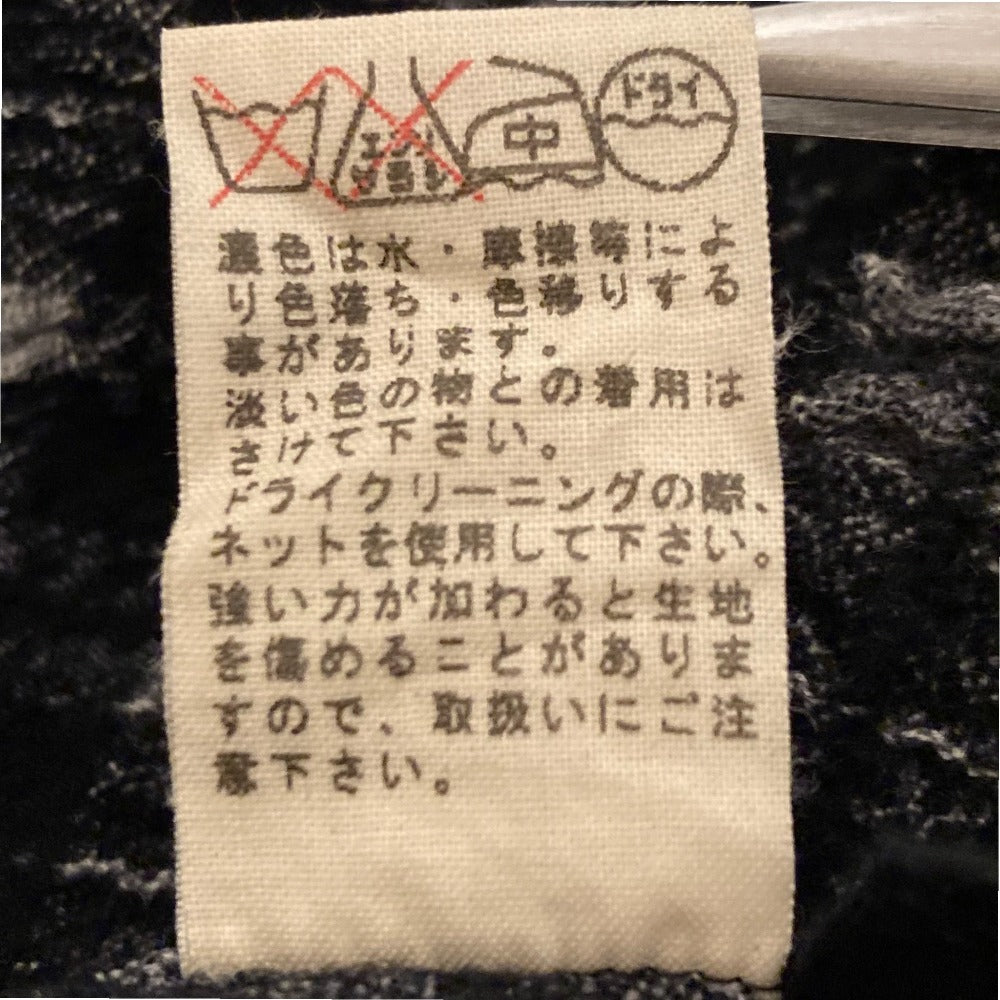 ドライ
エンソ
サラシ
中
濃色は水・摩擦等によ
り色落ち・色移りする
事があります。
淡い色の物との着用は
さけて下さい。
ドライクリーニングの際、
ネットを使用して下さい。
強い力が加わると生地
を傷めることがありま
すので、取扱いにご注
意下さい。